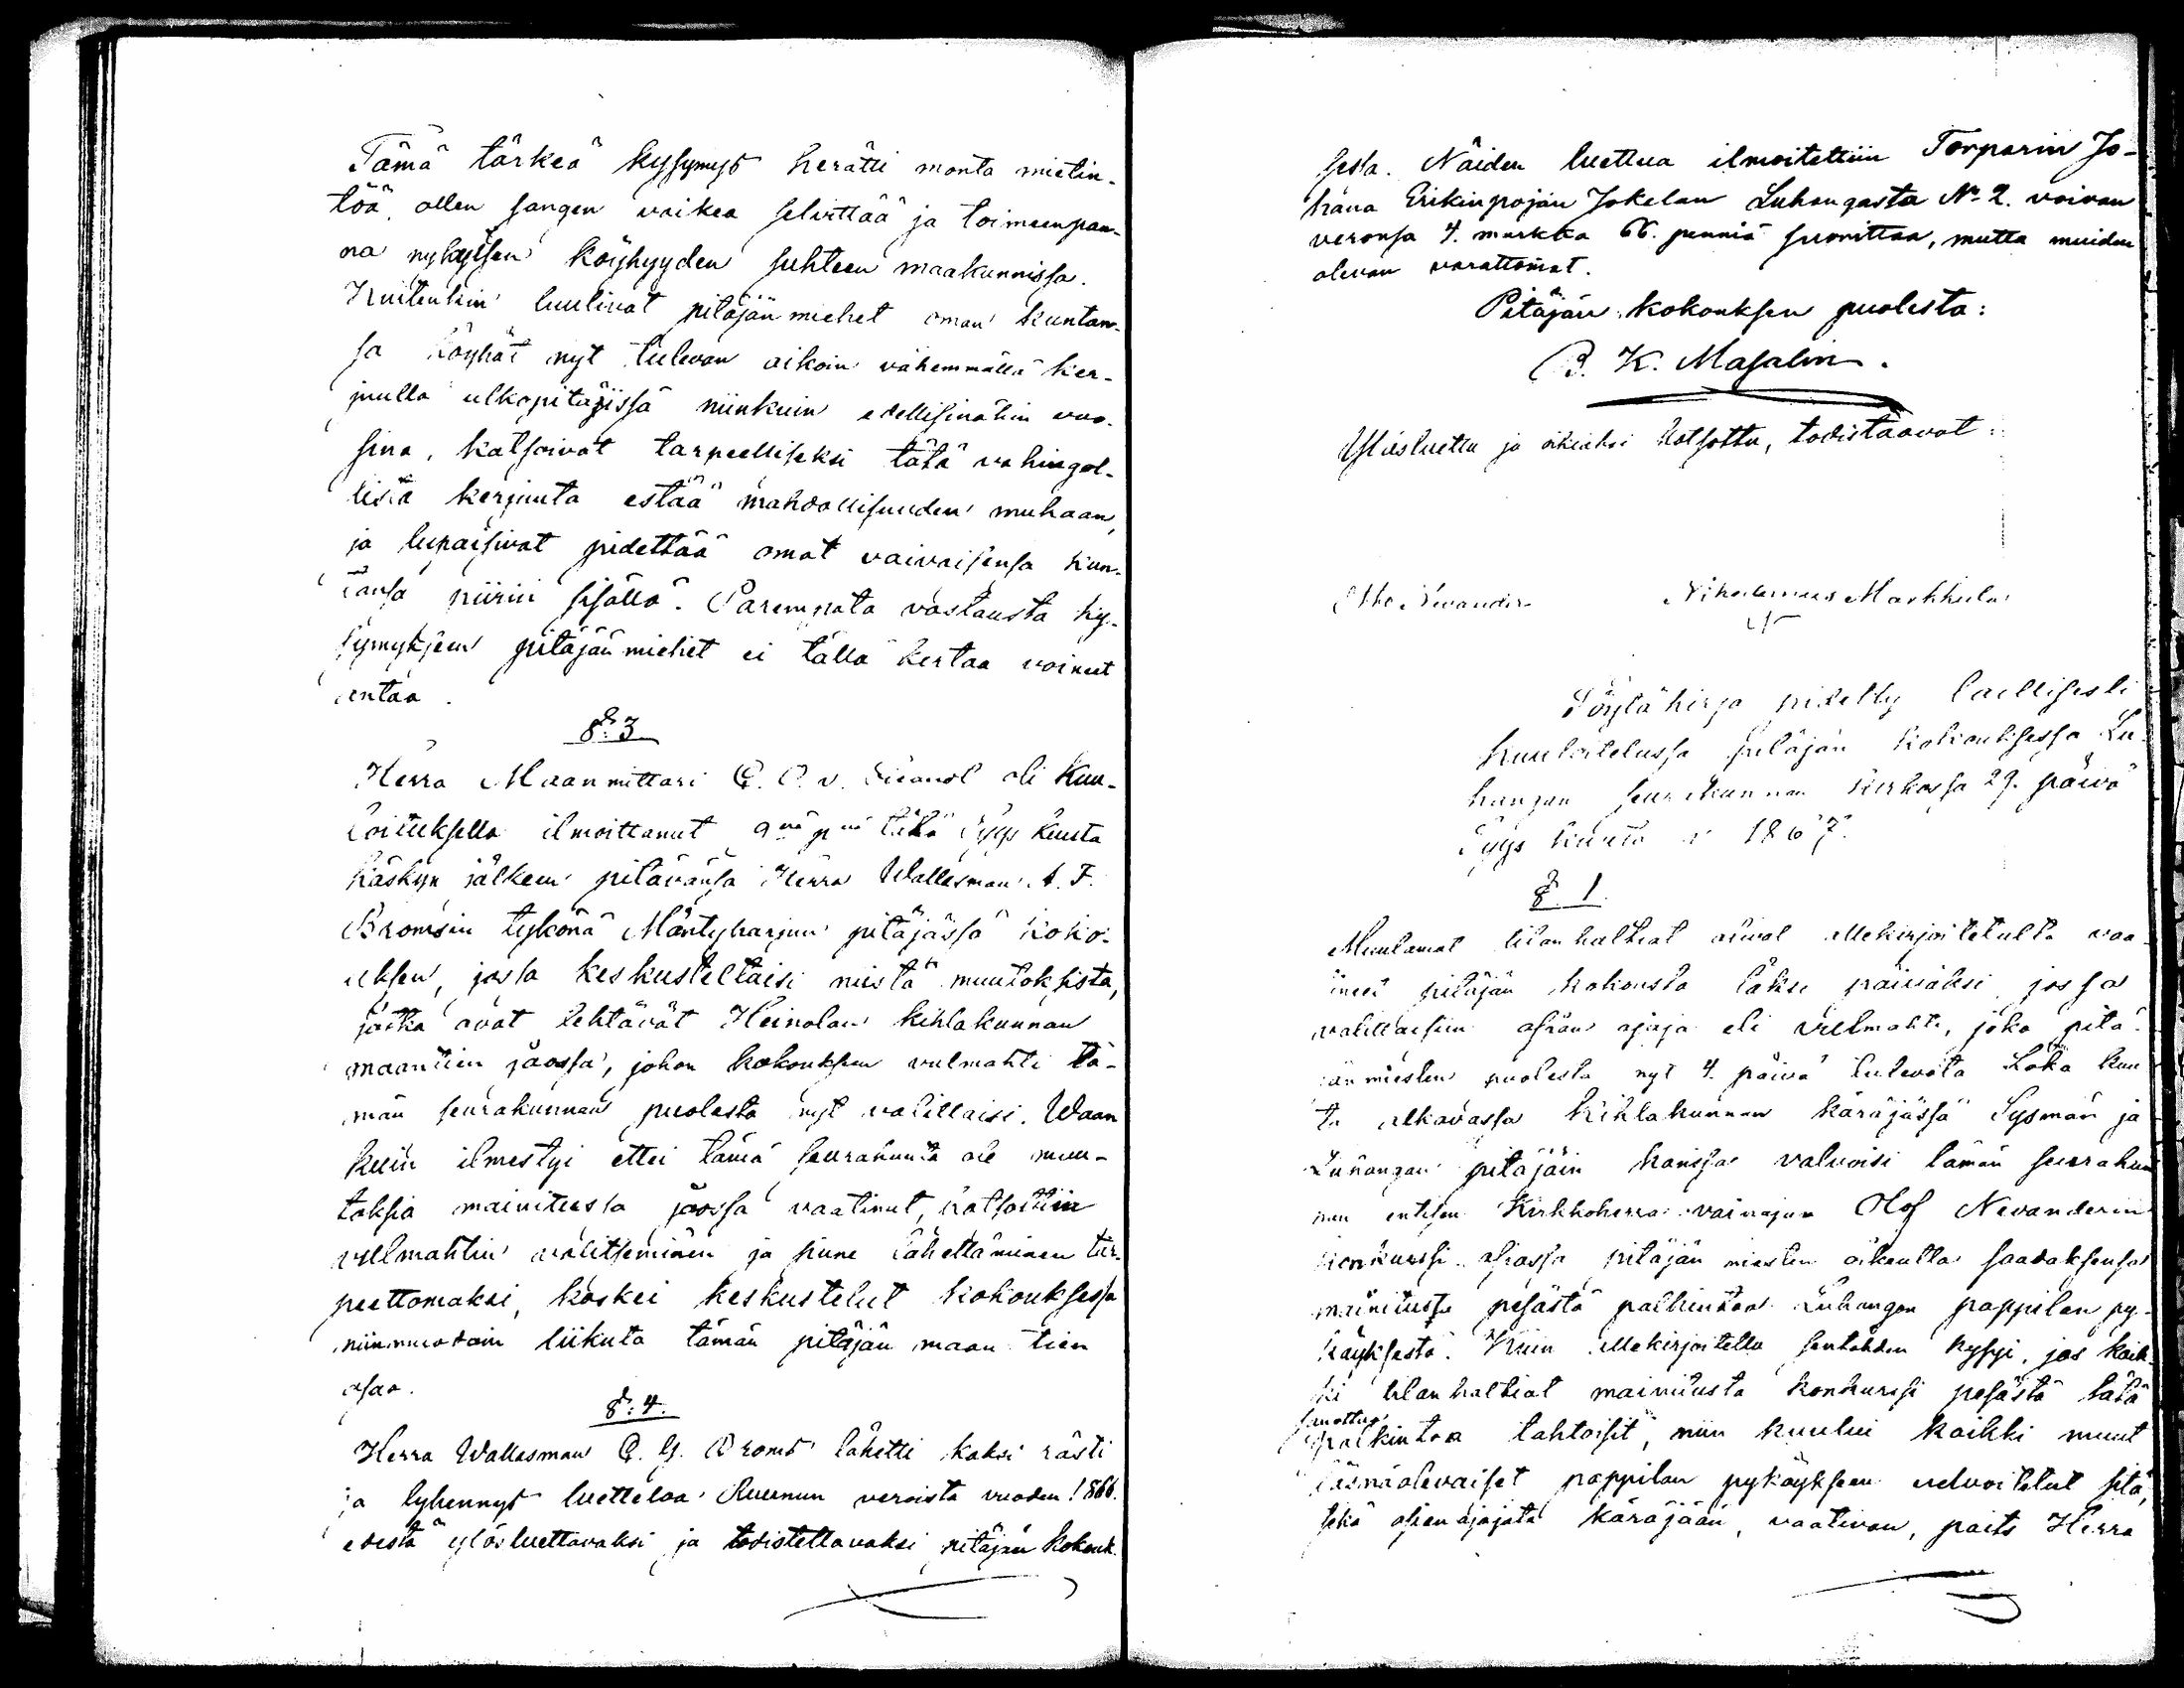 Tämä tärkeä kysymys herätti monta mietin-
töä, ollen sangen vaikea selvittää ja toimeenpan-
na nykyisen köyhyyden suhteen maakunnissa.
Kuitenkin luulivat pitäjän miehet oman kuntan-
sa köyhät nyt tulevan aikoin vähemmällä ker-
juulla ulkopitäjissä niinkuin edellisinäkin vuo-
sina, katsoivat tarpeelliseksi tätä vahingol-
lista kerjuuta estää mahdollisuuden mukaan,
ja lupaisivat pidettää omat vaivaisensa kun-
tansa piirin sisällä. Parempata vastausta ky-
symykseen pitäjänmiehet ei tällä kertaa voineet
antaa.
§: 3
Herra Maanmittari C. O. v. oli Kuu-
loituksella ilmoittanut 9nä pnä tätä Syys kuuta
käskyn jälkeen pitävänsä Herra Wallesman A. F.
Bromsin tykönä Mäntyharjun pitäjässä koko-
uksen, jossa keskusteltaisi niistä muutoksista,
jotka ovat tehtävät Heinolan kihlakunnan
maantien jaossa, johon kokouksen vulmahti tä-
män seurakunnan puolesta nyt valittaisi. Waan
kuin ilmestyi ettei tämä seurakunta ole muu-
toksia mainitussa jaossa vaatinut, katsottiin
vullmahtin valitseminen ja sinne lähettäminen tar-
peettomaksi, koskei keskustelut kokouksessa
niinmuodoin liikuta tämän pitäjän maan tien
osaa.
§: 4.
Herra Wallesman C. G. Broms lähetti kaksi rästi
ja lyhennys luetteloa Ruunun veroista vuoden 1866.
edestä ylösluettavaksi ja todistettavaksi pitäjän kokouk-
sesta. Näiden luettua ilmoitettiin Torparin Jo-
hana Erikinpojan Jokelan Luhangasta No 2. voivan
veronsa 4. markka 66. penniä suorittaa, mutta muiden
olevan varattomat.
Pitäjän kokouksen puolesta:
B. K. Masalin.
Ylösluettu ja oikiaksi katsottu, todistaavat:
Otto Nevander Nikodemus Markkula
Pöytäkirja pidetty laillisesti
kuuloitelussa pitäjän kokouksessa Lu-
hangan seurakunnan kirkossa 29. päivä
Syys kuuta 1867.
§ 1.
Muutamat tilanhaltiat olivat allekirjoitetulta vaa-
tineet pitäjän kokousta täksi päiväksi, jossa
valittaisiin asian ajaja eli vullmahti, joka pitä-
jän miesten puolesta nyt 4. päivä tulevata Loka kuu-
ta alkavassa kihlakunnan käräjässä Sysmän ja
Luhangan pitäjäin kanssa valvoisi tämän seurakun-
nan entisen Kirkkoherra vainajan Olof Nevanderin
konkurssi asiassa pitäjän miesten oikeutta saadaksensa
mainitusta pesästä palkintoa Luhangan pappilan py-
käyksestä. Kuin allekirjoitettu sentähden kysyi, jos kaik-
ki tilanhaltiat mainitusta konkurssi pesästä tätä
sanottua
palkintoa tahtoisit, niin kuului kaikki muut
läsnäolevaiset pappilan pykäykseen velvoitetut sitä,
sekä asian ajajata käräjään, vaativan, paits Herra